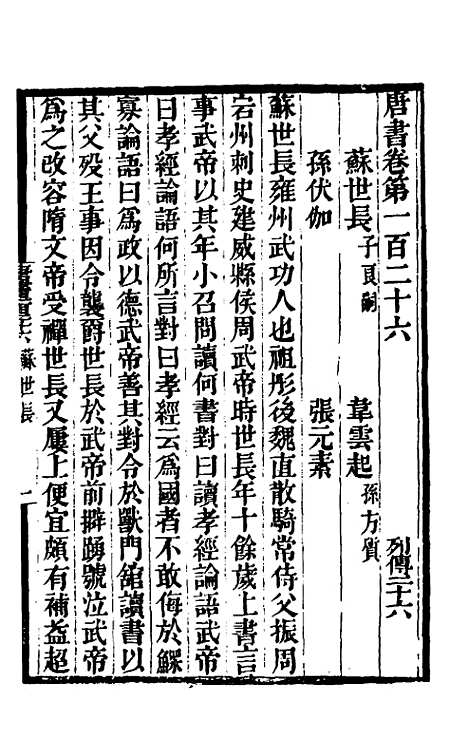 唐書卷第一百二十六 列傳三十六
蘇世長子良嗣 韋雲起孫方質
孫伏伽 張元素
蘇世長雍州武功人也祖彤後魏直散騎常侍父振周
宕州刺史建威縣侯周武帝時世長年十餘歲上書言
事武帝以其年小召問讀何書對曰讀孝經論語武帝
曰孝經論語何所言對曰孝經云為國者不敢侮於鰥
寡論語曰為政以德武帝善其對令於獸門舘讀書以
其父歿王事因令襲爵世長於武帝前擗踴號泣武帝
為之改容隋文帝受禪世長又屢上便宜頗有補益超
蘇世長 一